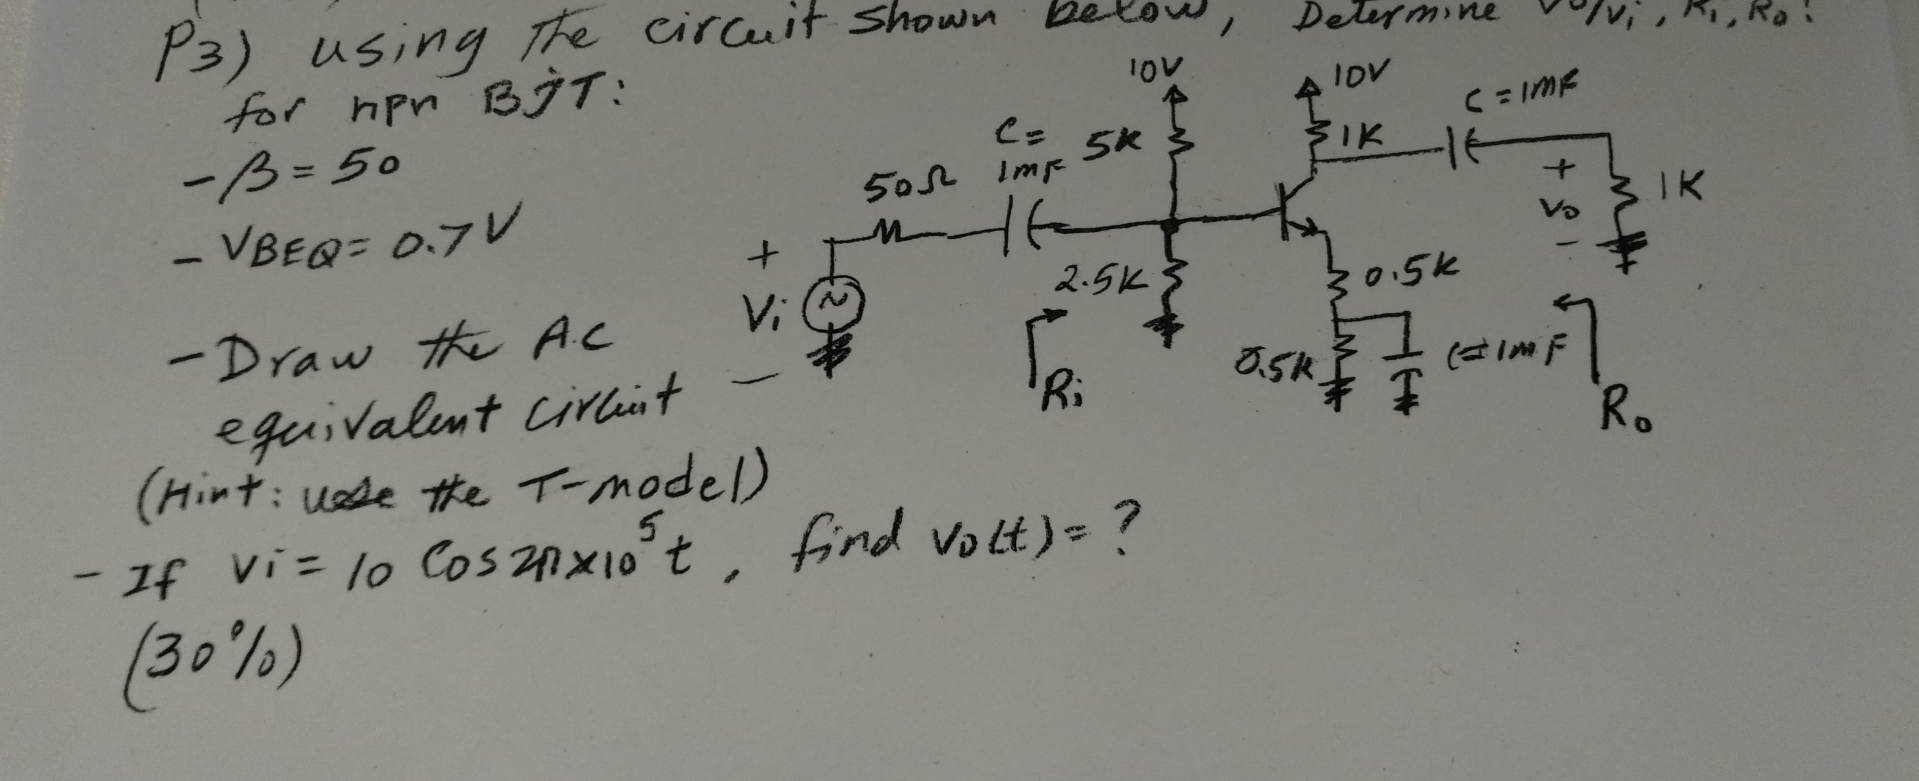 P3) using the circuit shown below, Determine Vo/Vi, Ri, Ro?
for npn BJT:
- β = 50
- VBEQ = 0.7 V
- Draw the A.C
equivalent circuit
(Hint: use the T-model)
- If Vi = 10 Cos 2π×10⁵t, find Vo(t) = ?
(30%)
10V
10V
C = 1MF
C =
1MF
5K
1K
50Ω
+
Vo
-
1K
+
Vi
-
2.5K
0.5K
0.5K
C = 1MF
Ri
Ro